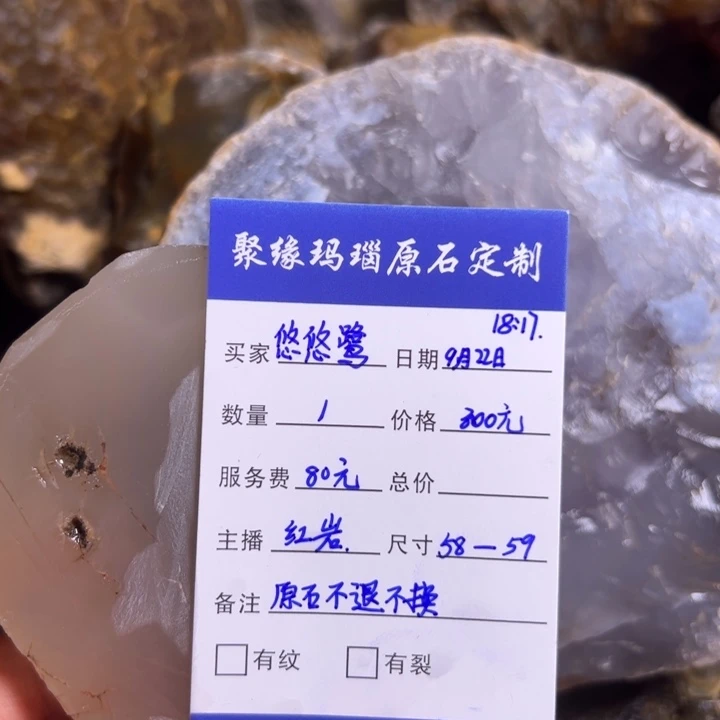 聚缘玛瑙原石定制
18:17.
买家 悠悠鹭 日期 9月22日
数量 1 价格 300元
服务费 80元 总价
主播 红岩. 尺寸 58-59
备注 原石不退不换
有纹 有裂